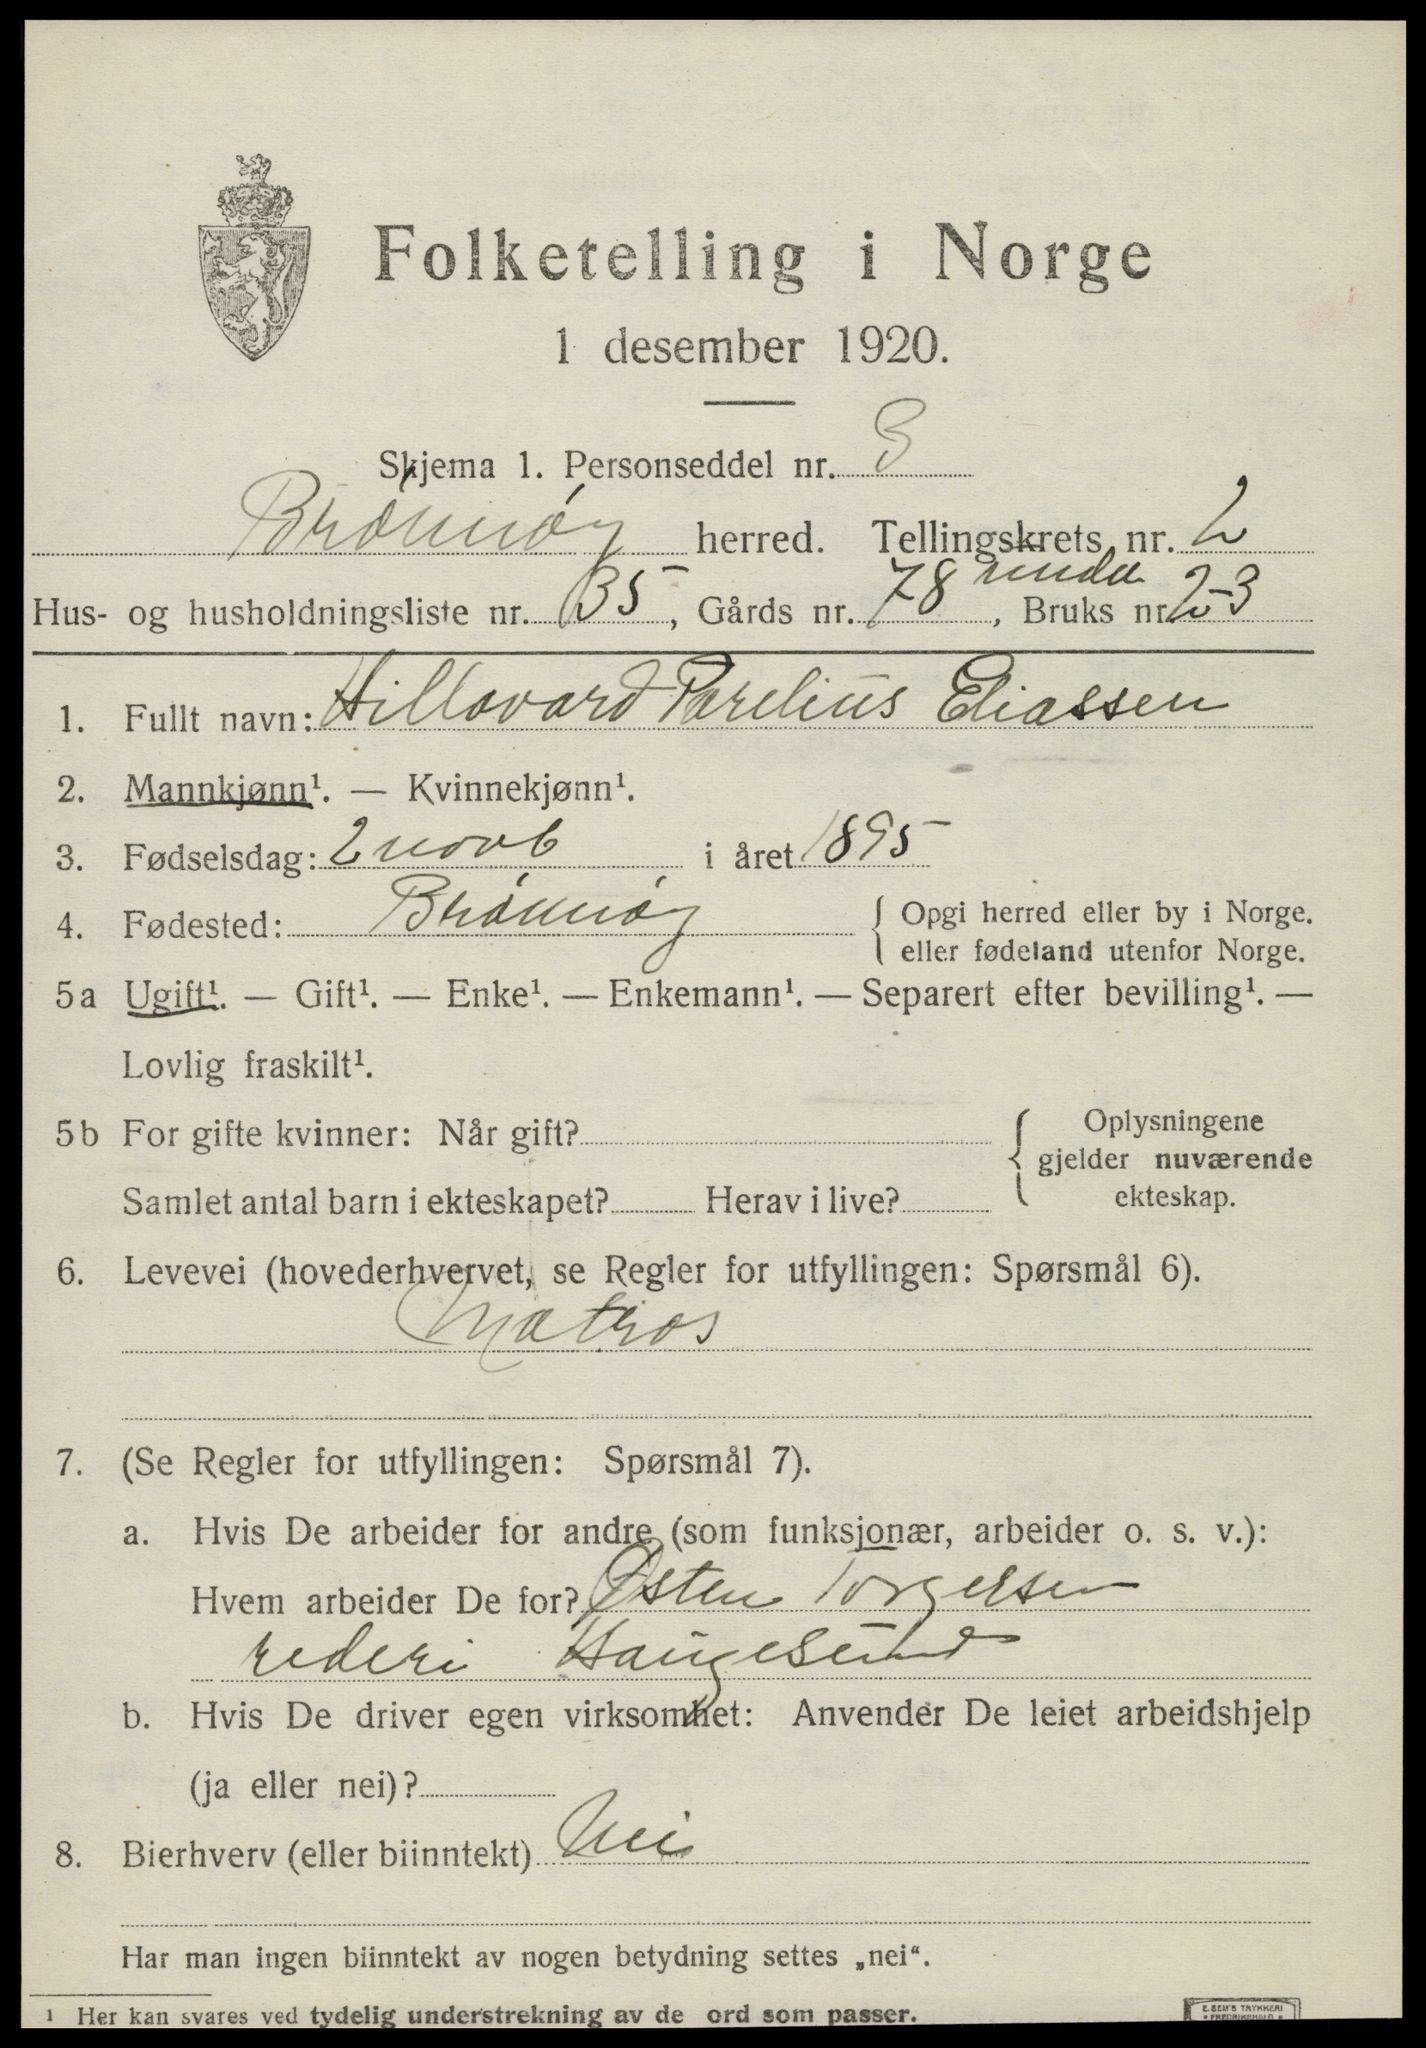 Folketelling i Norge
1 desember 1920.
Skjema 1. Personseddel nr. 3
Brønnøy herred. Tellingskrets nr. 2
Hus- og husholdningsliste nr. 35, Gårds nr. 78, Bruks nr. 2-3
1. Fullt navn: Hillovard Parelius Eliassen
2. Mannkjønn¹. — Kvinnekjønn¹.
3. Fødselsdag: 2 novb i året 1895
4. Fødested: Brønnøy { Opgi herred eller by i Norge.
eller fødeland utenfor Norge.
5a Ugift¹. — Gift¹. — Enke¹. — Enkemann¹. — Separert efter bevilling¹. —
Lovlig fraskilt¹.
5b For gifte kvinner: Når gift? { Oplysningene
gjelder nuværende
Samlet antal barn i ekteskapet? Herav i live? ekteskap.
6. Levevei (hovederhvervet, se Regler for utfyllingen: Spørsmål 6).
Matros
7. (Se Regler for utfyllingen: Spørsmål 7).
a. Hvis De arbeider for andre (som funksjonær, arbeider o. s. v.):
Hvem arbeider De for? Østen Torgersen
rederi Haugesund
b. Hvis De driver egen virksomhet: Anvender De leiet arbeidshjelp
(ja eller nei)?
8. Bierhverv (eller biinntekt) Nei
Har man ingen biinntekt av nogen betydning settes „nei“.
¹ Her kan svares ved tydelig understrekning av de ord som passer.
E. SEM'S TRYKKERI
FREDRIKSHALD